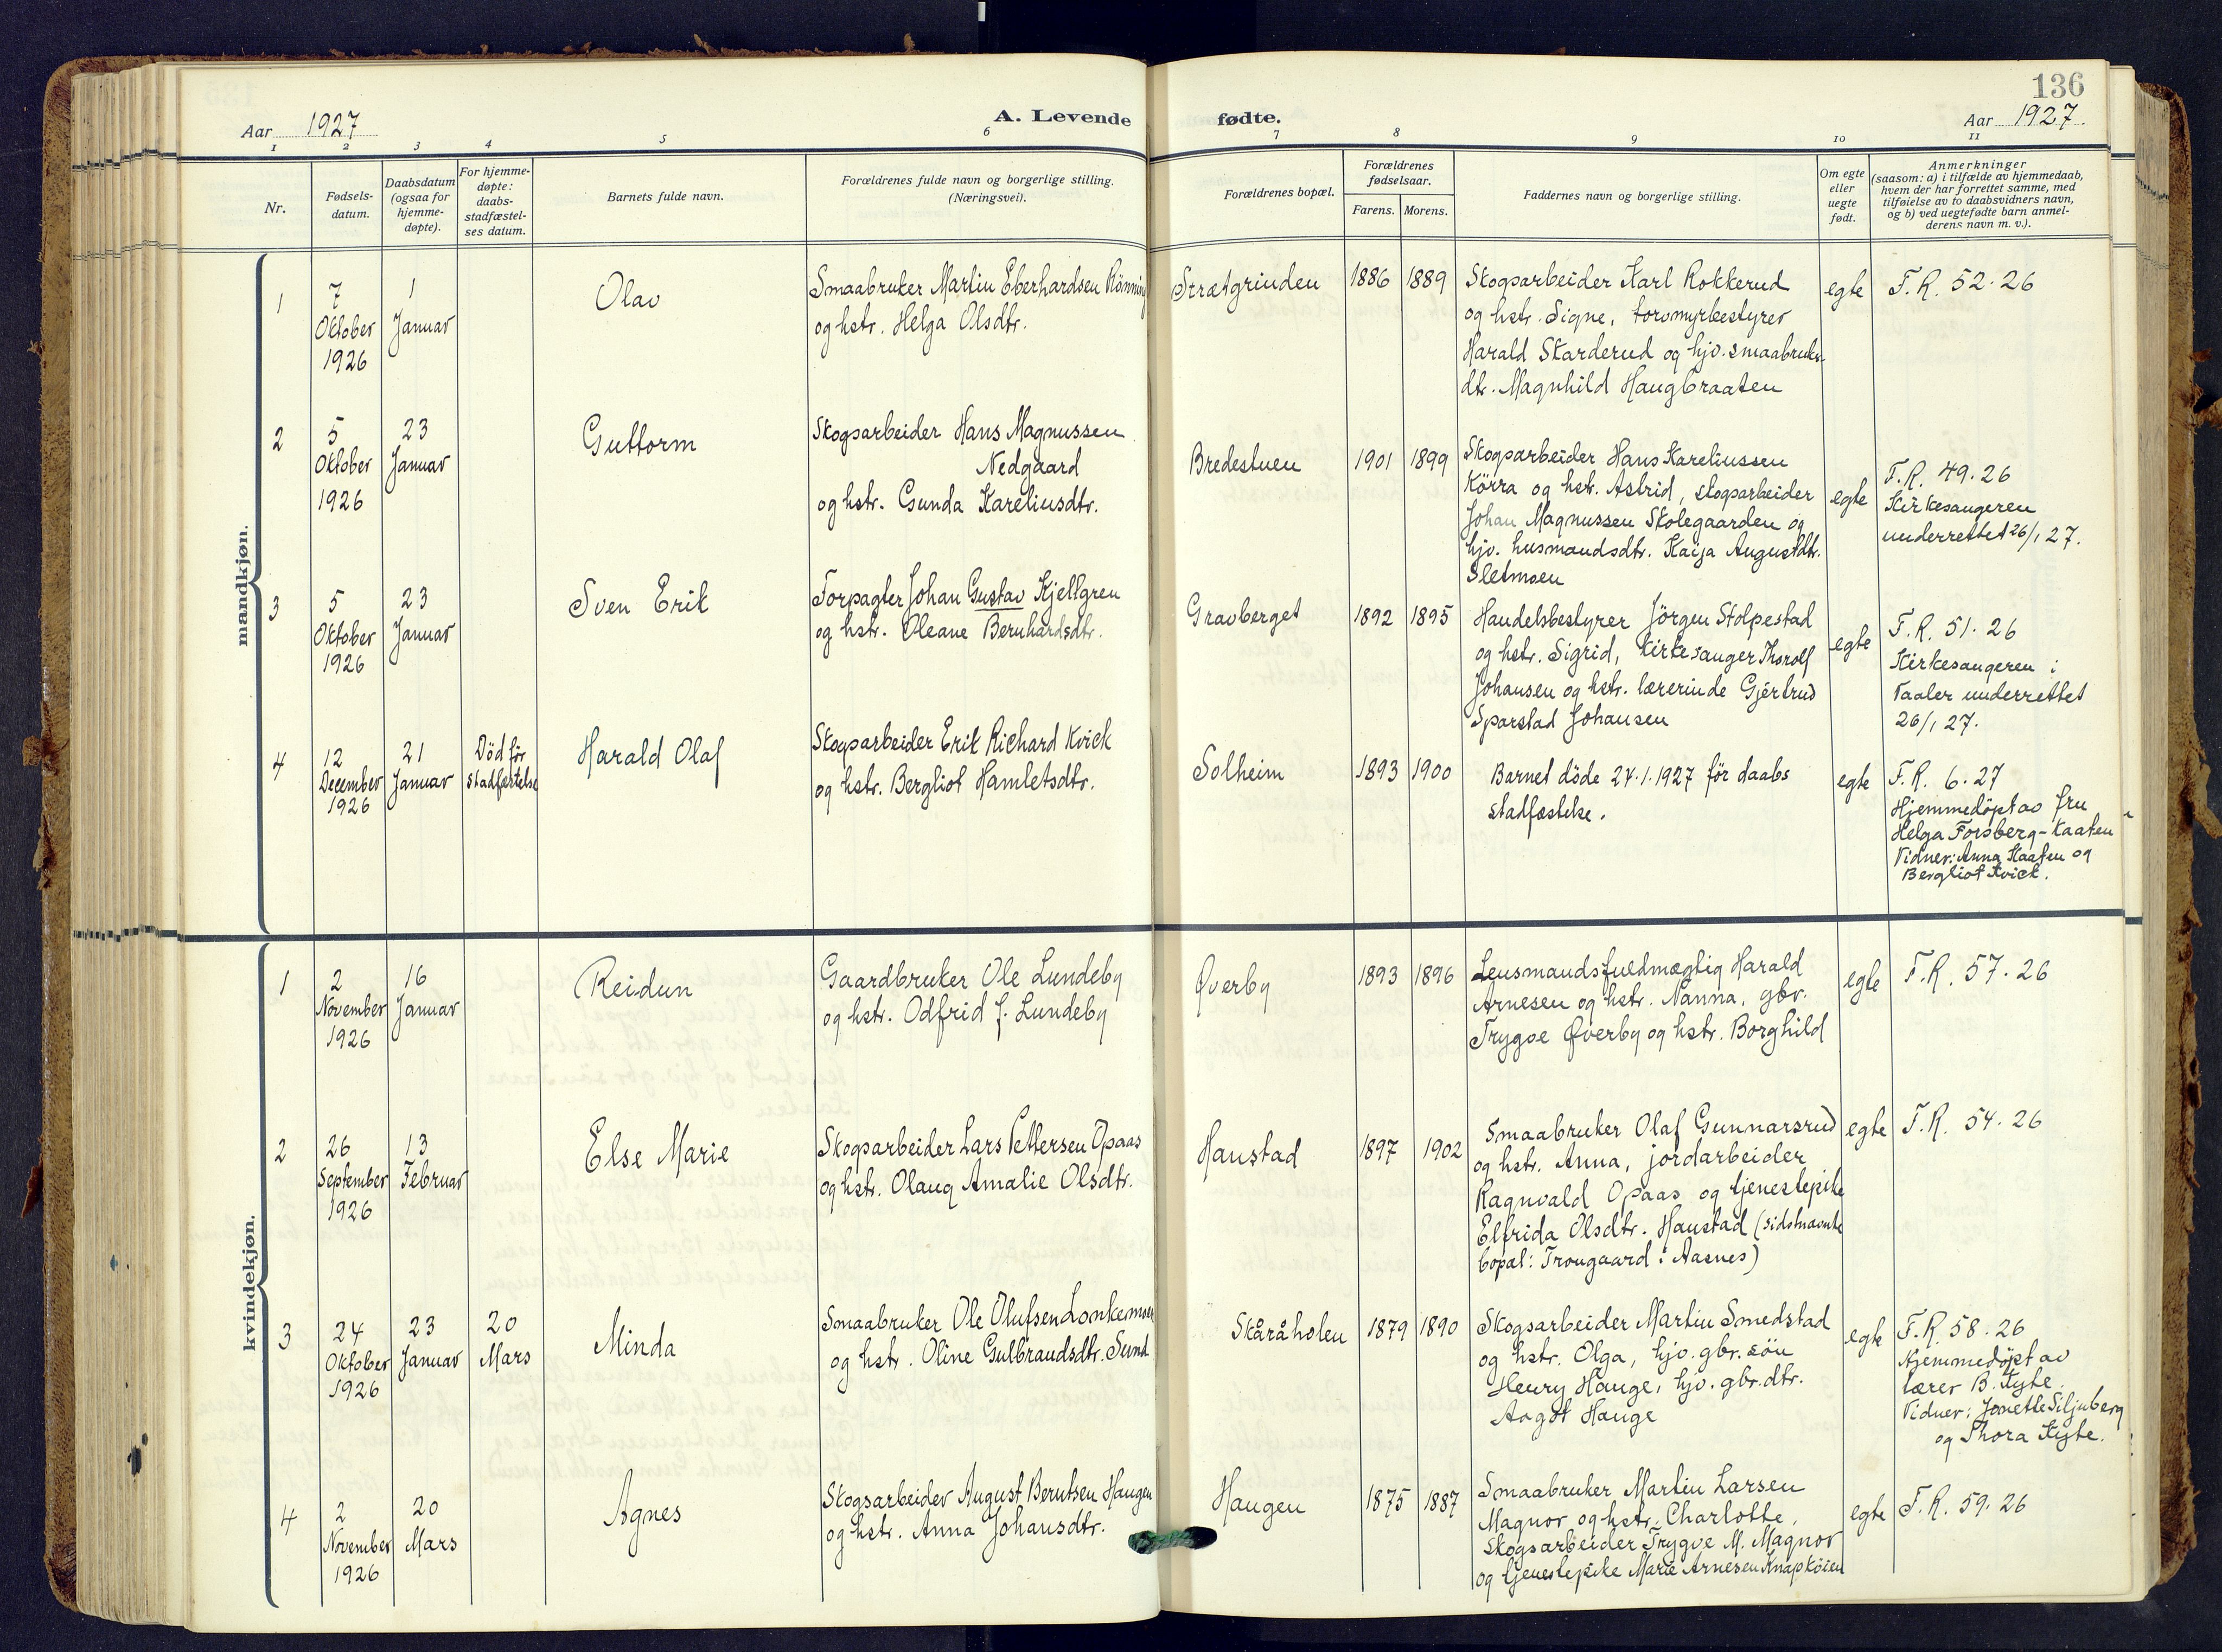 136
Aar 1927
A. Levende fødte.
Aar 1927.
1 2 3 4 5 6 7 8 9 10 11
Nr.
Fødsels-
datum.
Daabsdatum
(ogsaa for
hjemme-
døpte).
For hjemme-
døpte:
daabs-
stadfæstel-
ses datum.
Barnets fulde navn.
Forældrenes fulde navn og borgerlige stilling.
(Næringsvei).
Forældrenes bopæl.
Forældrenes
fødselsaar.
Farens. Morens.
Faddernes navn og borgerlige stilling.
Om egte
eller
uegte
født.
Anmerkninger
(saasom: a) i tilfælde av hjemmedaab,
hvem der har forrettet samme, med
tilføielse av to daabsvidners navn,
og b) ved uegtefødte barn anmel-
derens navn m. v.).
mandkjøn.
1
7
Oktober
1926
1
Januar
Olav
Smaabruker Martin Eberhardsen Rönning
og hstr. Helga Olsdtr.
Strætgrinden
1886 1889
Skogsarbeider Karl Rokkerud
og hstr. Signe, torvmyrbestyrer
Harald Skarderud og hjv. smaabruks-
dtr. Magnhild Haugbraaten
egte
F.R. 52.26
2
5
Oktober
1926
23
Januar
Guttorm
Skogsarbeider Hans Magnussen
Nedgaard
og hstr. Gunda Kareliusdtr.
Bredestuen
1901 1899
Skogsarbeider Hans Kareliussen
Körra og hstr. Astrid, skogsarbeider
Johan Magnussen Skolegaarden og
hjv. husmandsdtr. Kaija Augustdtr.
Sletmoen
egte
F.R. 49.26
Kirkesangeren
underrettet 26/1 27.
3
5
Oktober
1926
23
Januar
Sven Erik
Forpagter Johan Gustav Kjellgren
og hstr. Oleane Bernhardsdtr.
Gravberget
1892 1895
Handelsbestyrer Jörgen Stolpestad
og hstr. Sigrid, kirkesanger Thorolf
Johansen og hstr. lærerinde Gjertrud
Sparstad Johansen
egte
F.R. 51.26
Kirkesangeren i
Vaaler underrettet
26/1 27.
4
12
December
1926
21
Januar
Död för
stadfæstelse
Harald Olaf
Skogsarbeider Erik Richard Kvick
og hstr. Bergliot Hamletsdtr.
Solheim
1893 1900
Barnet döde 24.1.1927 för daabs
stadfæstelse.
egte
F.R. 6.27
Hjemmedöpt av fru
Helga Forsberg-Kaaten
Vidner: Anna Kaaten og
Bergliot Kvick.
kvindekjøn.
1
2
November
1926
16
Januar
Reidun
Gaardbruker Ole Lundeby
og hstr. Odfrid f. Lundeby
Øverby
1893 1896
Lensmandsfuldmægtig Harald
Arnesen og hstr. Nanna, gbr.
Trygve Øverby og hstr. Borghild
egte
F.R. 57.26
2
26
September
1926
13
Februar
Else Marie
Skogsarbeider Lars Pettersen Opaas
og hstr. Olaug Amalie Olsdtr.
Haustad
1897 1902
Smaabruker Olaf Gunnarsrud
og hstr. Anna, jordarbeider
Ragnvald Opaas og tjenestepike
Elfrida Olsdtr. Haustad (sidstnævnte
bopæl: Trougaard i Aasnes)
egte
F.R. 54.26
3
24
Oktober
1926
23
Januar
20
Mars
Minda
Smaabruker Ole Olufsen Lonkemoen
og hstr. Oline Gulbrandsdtr. Sund
Skåråholen
1879 1890
Skogsarbeider Martin Smedstad
og hstr. Olga, hjv. gbr. sön
Henry Hauge, hjv. gbr. dtr.
Aagot Hauge
egte
F.R. 58.26
Hjemmedöpt av
lærer B. Kybe.
Vidner: Jonette Siljuberg
og Thora Kybe.
4
2
November
1926
20
Mars
Agnes
Skogsarbeider August Berntsen Haugen
og hstr. Anna Johansdtr.
Haugen
1875 1887
Smaabruker Martin Larsen
Magnor og hstr. Charlotte,
skogsarbeider Trygve M. Magnor
og tjenestepike Marie Arnesen Knapköien
egte
F.R. 59.26